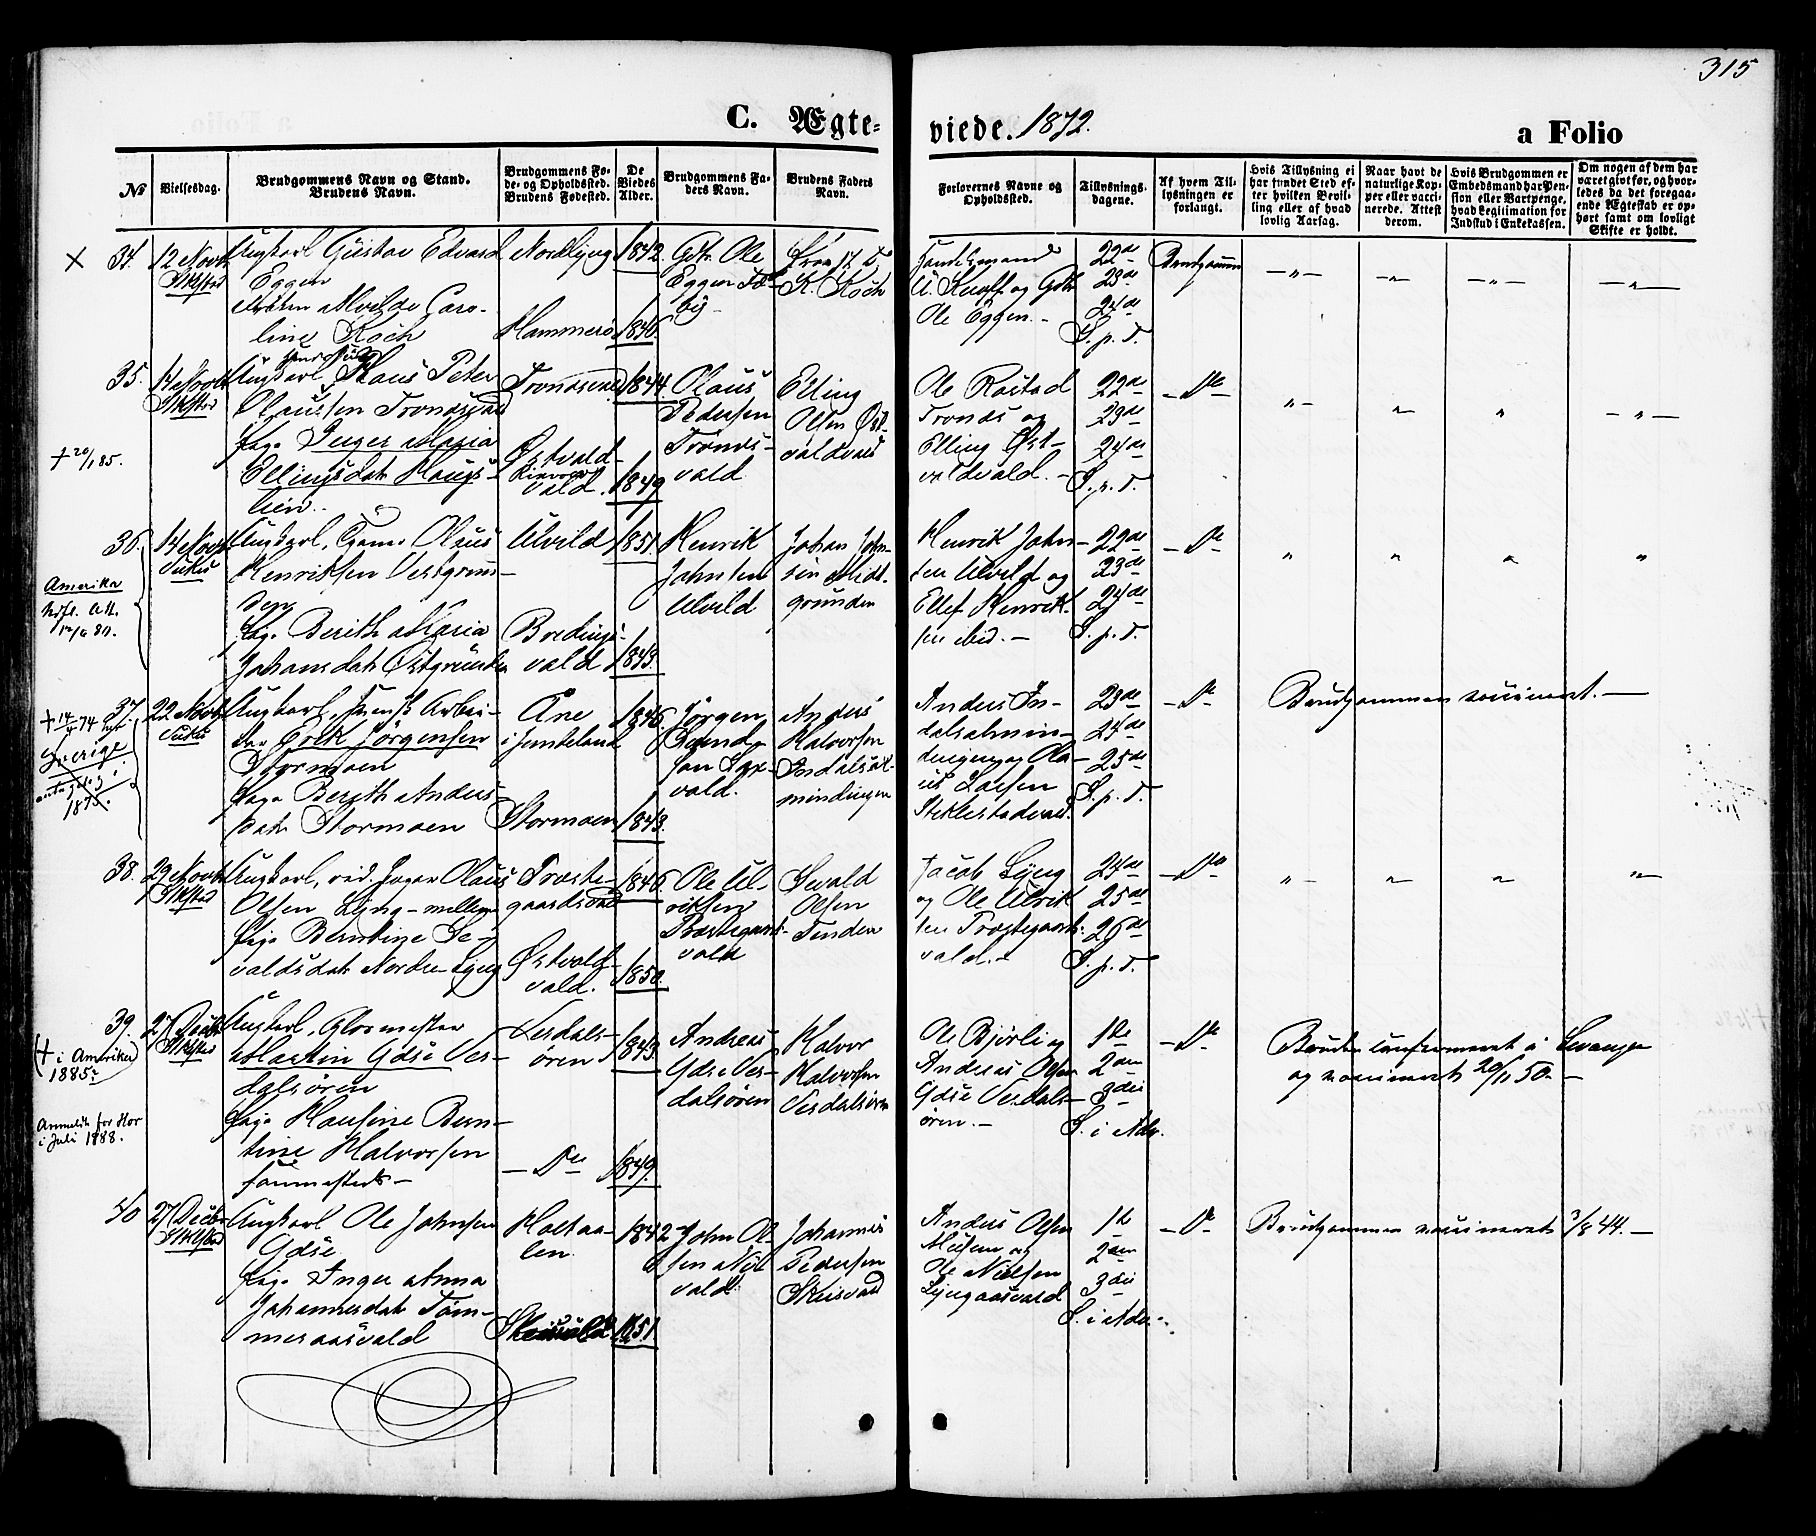 315
C. Ægte-
viede. 1872.
a Folio
No
Vielsesdag.
Brudgommens Navn og Stand.
Brudens Navn.
Brudgommens Fø-
de- og Opholdssted.
Brudens Fødested.
De
Viedes
Alder.
Brudgommens Fa-
ders Navn.
Brudens Faders
Navn.
Forlovernes Navne og
Opholdssted.
Tillysnings-
dagene.
Af hvem Til-
lysningen er
forlangt.
Hvis Tillysning ei
har fundet Sted ef-
ter hvilken Bevil-
ling eller af hvad
lovlig Aarsag.
Naar havt de
naturlige Kop-
per eller vacci-
nerede. Attest
derom.
Hvis Brudgommen er
Embedsmand har Pen-
sion eller Vartpenge,
hvad Legitimation for
Indskud i Enkekassen.
Om nogen af dem har
været givt før, og hvor-
ledes da det foregaa-
ende Ægteskab er op-
hørt samt om lovligt
Skifte er holdt.
34.
12 Novbr
Stklstad
Ungkarl Gustav Edvard
Eggen
Alvilde Caro-
line Koch
Nordlyng
Hammerø
1842.
1846.
Gdr. Ole
Eggen
K. Koch
Handelsmand
og Gdr
Ole Eggen. -
22de
23de
24de
S. p. T.
Brudgommen
35.
14 Novbr
Stklstad
+ 20/1 85.
Ungkarl Hans Peter
Olaussen Trondsvald
Pige Inger Maria
Ellingsdatr Haugs-
lien.
Trondsvald
Østvald-
vald.
1844.
1849.
Olaus
Pedersen
Tronds-
vald
Elling
Olsen Øst-
valdvald
Ole Rostad
Tronds og
Elling Øst-
valdvald. -
22de
23de
24de
S. p. T.
- Do -
36.
14 Novbr
Vukus
Amerika
Ungkarl, Olaus
Henriksen Vestgrun-
den
Pige Berith Maria
Johansdatr Østgrunden
Ulvild
Bredings-
vald
1851.
1843.
Henrik
Johnsen
Ulvild
Johan John-
sen Midt-
grunden
Henrik John-
sen Ulvild og
Ellef Henrik-
sen ibid. -
22de
23de
24de
S. p. T.
- Do -
37.
22 Novbr
Vukus
+ 14/4 74
Sverige
antagelig i
1875.
Ungkarl, svensk Arbei-
der Erik Jørgensen
Stormoen
Pige Berith Anders-
datr Stormoen
Åre
i Jemteland
Stormoen
1846.
1843.
Jørgen
vald.
Anders
Halvorsen
Indalsal-
mindingen
Anders In-
dalsalmin-
dingen og Ola-
us Larsen
Stiklestadvald.
23de
24de
25de
S. p. T.
- Do -
Brudgommen vaccineret. -
38.
29 Novbr
Stklstad
Ungkarl, Olaus
Olsen Lyng-mellem
Pige Berntine Se-
valdsdatr Nordre-Lyng
Præste-
gaardsvald
Østvald-
vald.
1846.
1850.
Ole Ul-
riksen
Præstegaards-
vald
Sevald
Olsen
Tinden
Jacob Lyng
og Ole Ulrik-
sen Præstegaards-
vald. -
24de
25de
26de
S. p. T.
- Do -
39.
27 Decbr
Stklstad
(+ i Amerika)
1885?
Anmeldt for Mor
i Juli 1888.
Ungkarl, Glarmester
Martin Ydse Ver-
dalsøren
Pige Hansine Bern-
tine Halvorsen
Verdals-
øren
- Do
1843.
1849.
Andreas
Ydse Ver-
dalsøren
Halvor
Halvorsen
Verdalsøren
Ole Bjørli og
Anders Olsen
Ydse Verdals-
øren. -
1ste
2den
3die
S. i Adv.
- Do -
Bruden confirmeret i Levanger
og vaccineret 20/11 50. -
40
27 Decbr
Stklstad
Ungkarl Ole Johnsen
Ydse
Pige Inger Anna
Johannesdatr Tøm-
meraasvald
Holtaa-
len
1842
1851
John Ol-
sen
vald
Johannes
Pedersen
Anders Olsen
og
Ole Nielsen
Lyngaasvald
1ste
2den
3die
S. i Adv. -
- Do -
Brudgommen vaccineret 3/8 44. -